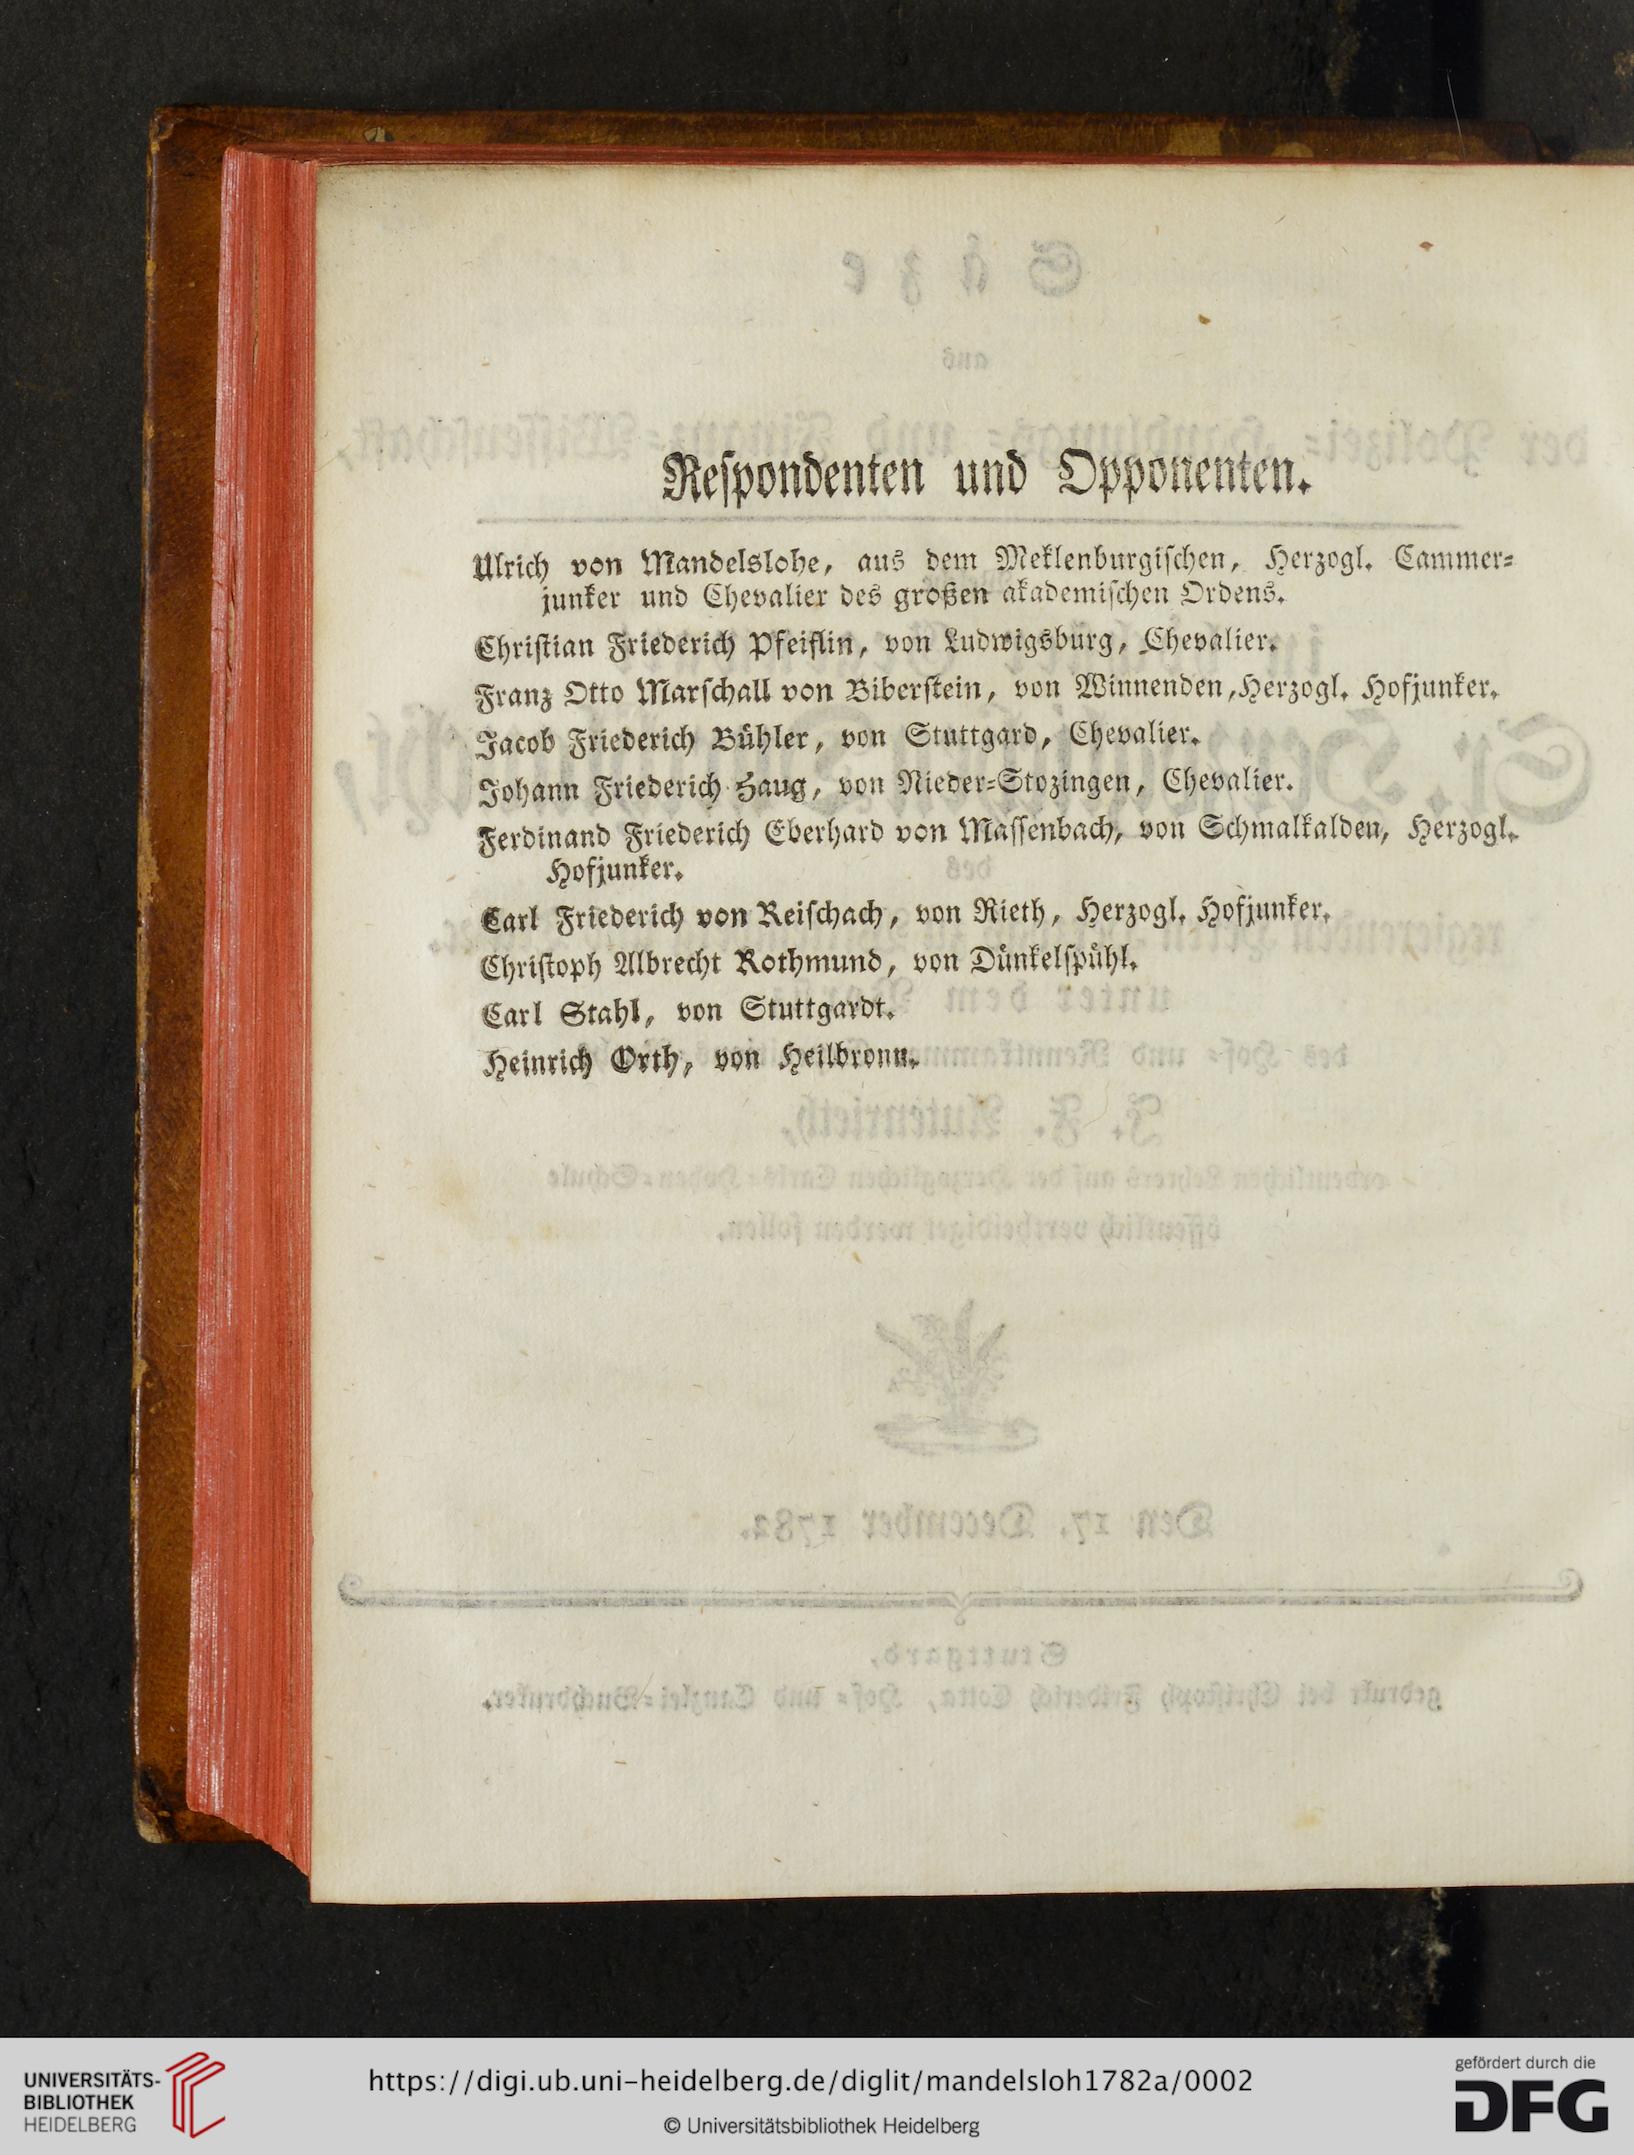 Respondenten und Opponenten.
Ulrich von Mandelslohe, aus dem Meklenburgischen, Herzogl. Cammer-
junker und Chevalier des großen akademischen Ordens.
Christian Friederich Pfeiflin, von Ludwigsburg, Chevalier.
Franz Otto Marschall von Biberstein, von Winnenden, Herzogl. Hofjunker.
Jacob Friederich Bühler, von Stuttgard, Chevalier.
Johann Friederich Haug, von Nieder-Stozingen, Chevalier.
Ferdinand Friederich Eberhard von Massenbach, von Schmalkalden, Herzogl.
Hofjunker.
Carl Friederich von Reischach, von Rieth, Herzogl. Hofjunker.
Christoph Albrecht Rothmund, von Dünkelspühl.
Carl Stahl, von Stuttgardt.
Heinrich Orth, von Heilbronn.
UNIVERSITÄTS-
BIBLIOTHEK
HEIDELBERG
https://digi.ub.uni-heidelberg.de/diglit/mandelsloh1782a/0002
© Universitätsbibliothek Heidelberg
gefördert durch die
DFG